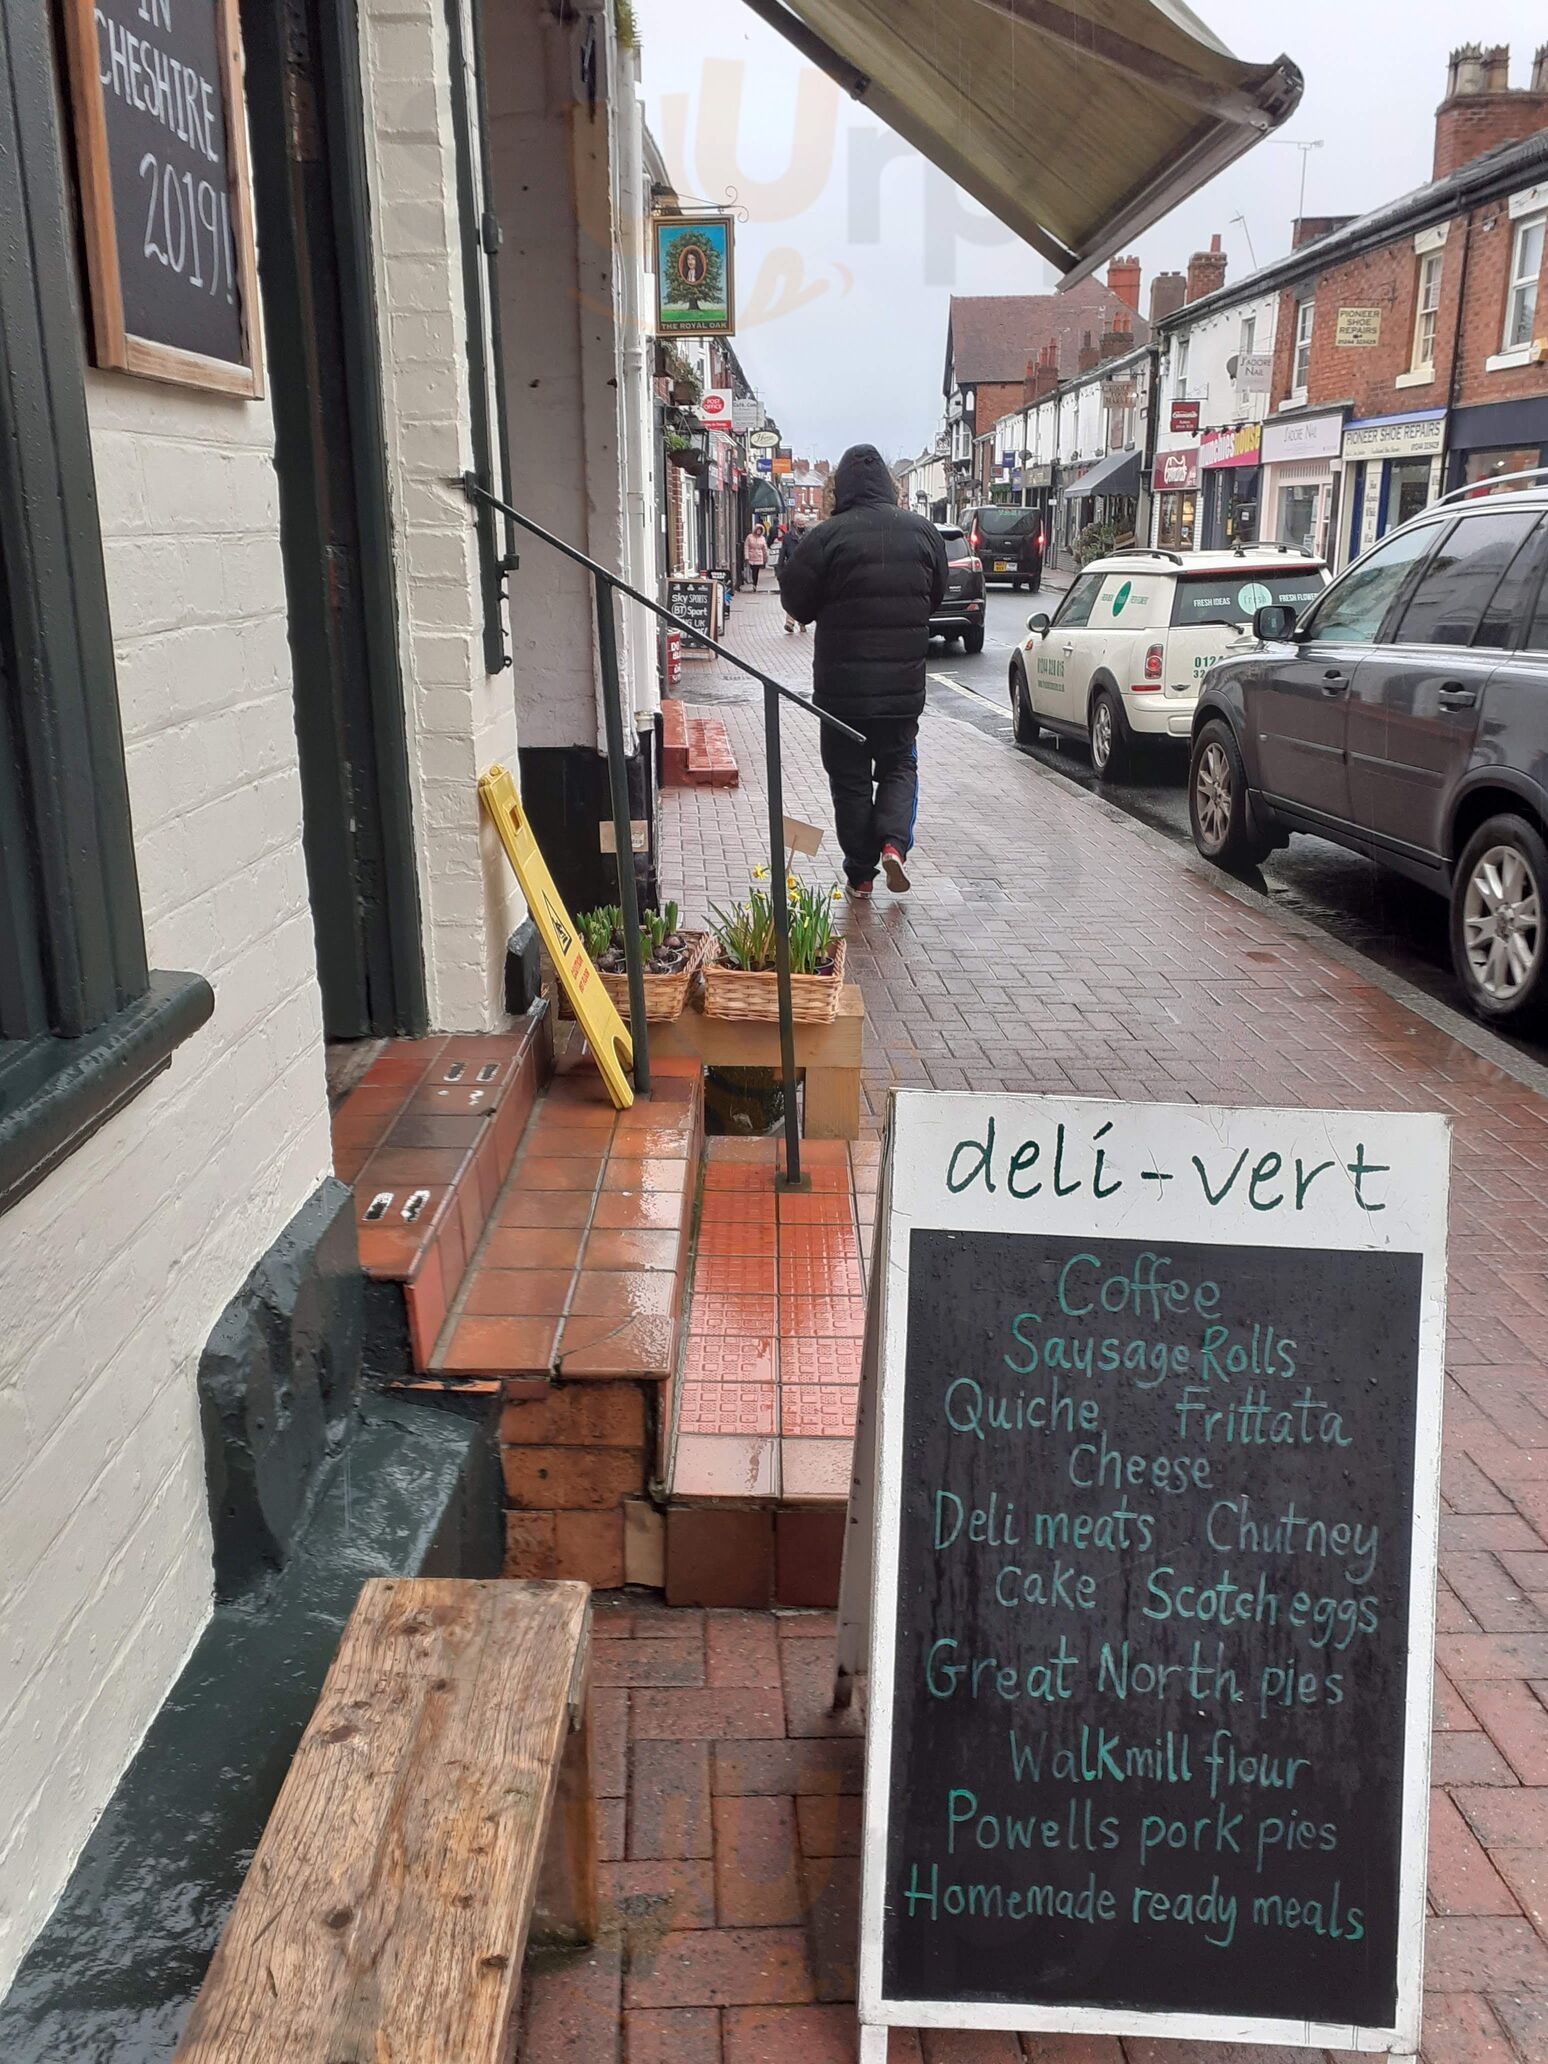 IN
CHESHIRE
2019!
THE ROYAL OAK
POST
OFFICE
sky SPORTS
BT Sport
PIONEER
SHOE
REPAIRS
J'ADORE
NAIL
J'ADORE NAIL
PIONEER SHOE REPAIRS
FRESH IDEAS
fresh
FRESH FLOWERS
01244 320 616
CAUTION
deli-vert
Coffee
Sausage Rolls
Quiche Frittata
Cheese
Deli meats Chutney
Cake Scotch eggs
Great North pies
Walkmill flour
Powells pork pies
Homemade ready meals